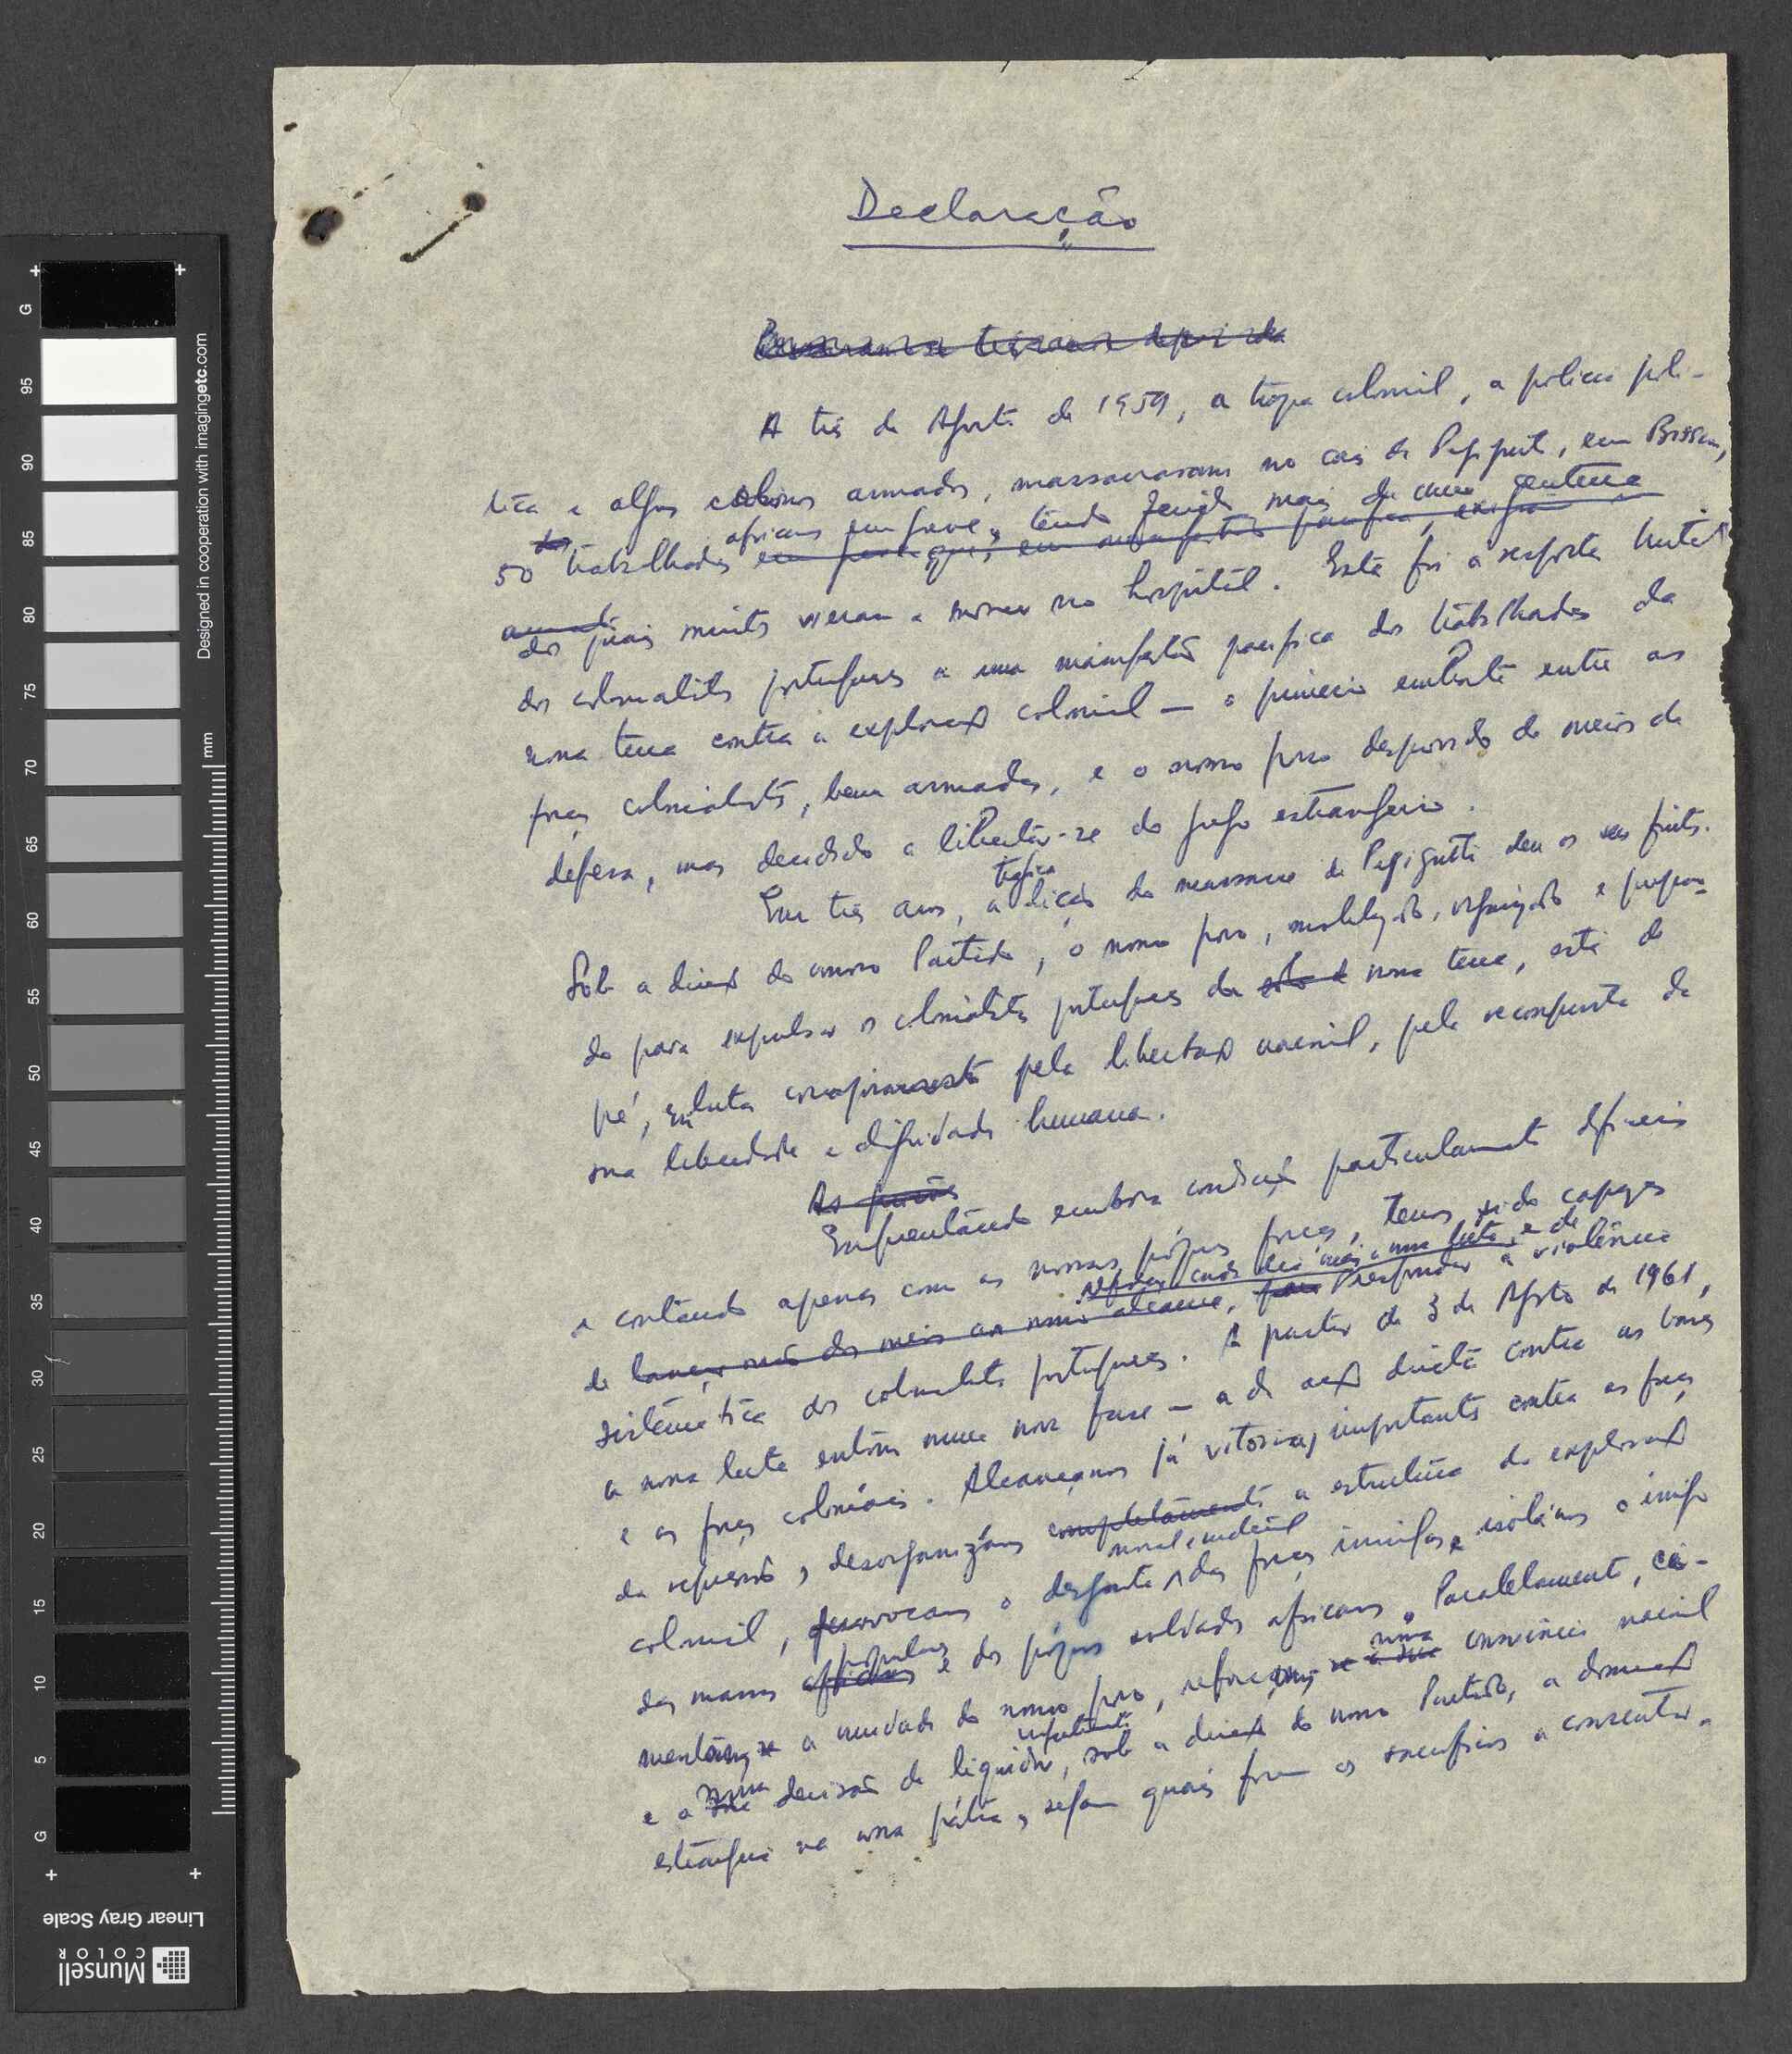 Declaração
A três de Agosto de 1959, a tropa colonial, a polícia polí-
tica e alguns colonos armados, massacraram no cais de Pigiguiti, em Bissau,
50 trabalhadores africanos em greve, tendo ferido mais de uma centena
dos quais muitos vieram a morrer no hospital. Esta foi a resposta brutal
dos colonialistas portugueses a uma manifestação pacífica dos trabalhadores da
nossa terra contra a exploração colonial — o primeiro embate entre as
forças colonialistas, bem armadas, e o nosso povo desprovido de meios de
defesa, mas decidido a libertar-se do jugo estrangeiro.
Em três anos, a trágica lição do massacre de Pigiguiti deu os seus frutos.
Sob a direcção do nosso Partido, o nosso povo, mobilizado, organizado e prepara-
do para expulsar os colonialistas portugueses da nossa terra, está de
pé, em luta corajosamente pela libertação nacional, pela reconquista da
sua liberdade e dignidade humana.
As
Enfrentando embora condições particularmente difíceis
e contando apenas com as nossas próprias forças, temos sido capazes
reforçar cada dia mais a nossa luta, e de
de lançar mão dos meios ao nosso alcance, para responder à violência
sistemática dos colonialistas portugueses. A partir de 3 de Agosto de 1961,
a nossa luta entrou numa nova fase — a da acção directa contra as bases
e as forças coloniais. Alcançamos já vitórias importantes contra as forças
da repressão, desorganizámos completamente a estrutura da exploração
moral e material
colonial, provocamos o desgaste das forças inimigas e isolámos o inimigo
das massas populares e dos próprios soldados africanos. Paralelamente, ci-
mentámos a unidade do nosso povo, reforçámos a nossa consciência nacional
e a nossa decisão de liquidar, sob a direcção do nosso Partido, a dominação
estrangeira na nossa pátria, sejam quais forem os sacrifícios a consentir.
Designed in cooperation with imagingetc.com
mm
G
95
90
85
80
75
70
65
60
55
50
45
40
35
30
25
20
15
10
5
G
Linear Gray Scale
Munsell
COLOR